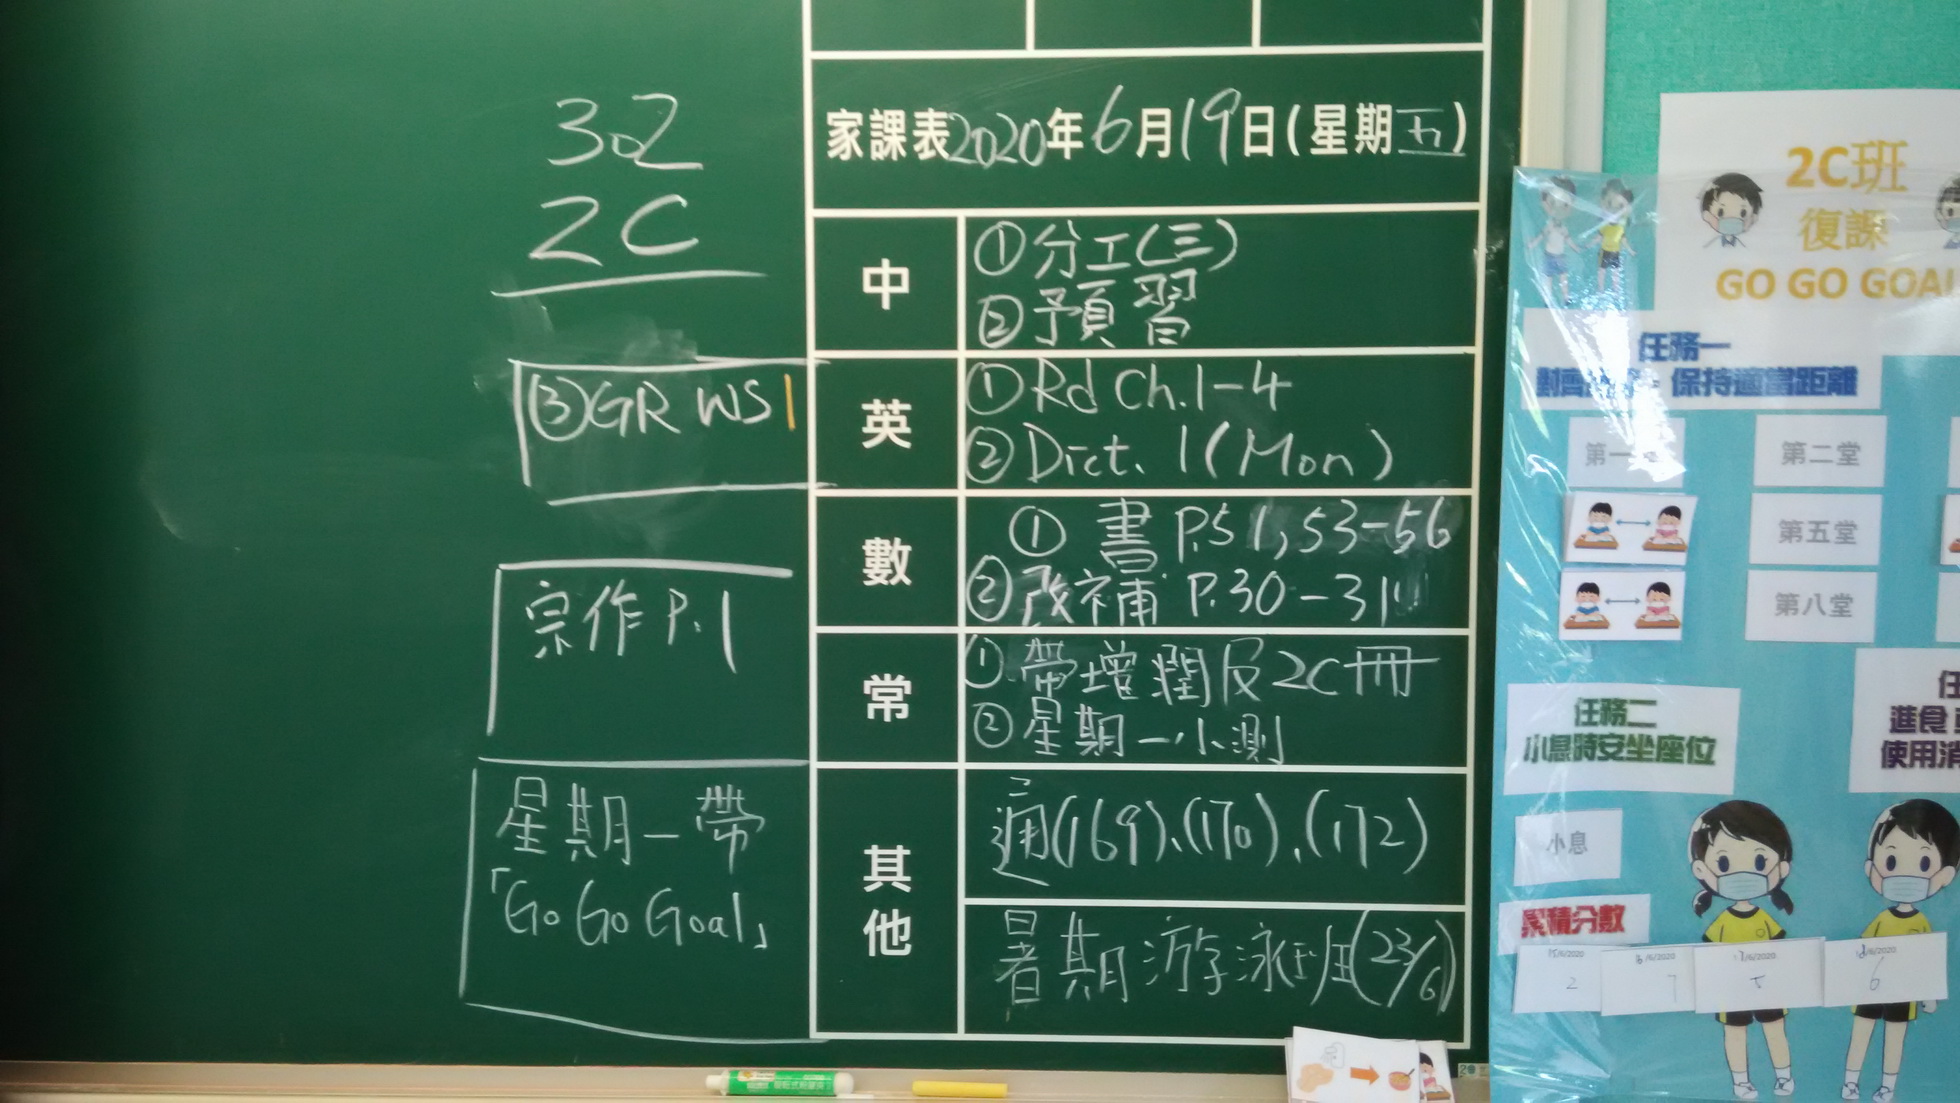 30Z
2C
家課表2020年6月19日(星期五)
中
①分工(三)
②予頁習
英
①Rd Ch.1-4
②Dict. 1 (Mon)
③GR WS1
數
①書 P.51, 53-56
②改補 P.30-31
宗作 P.1
常
①帶增潤及2C冊
②星期一小測
星期一帶
「Go Go Goal」
其他
通(169)、(170)、(172)
暑期游泳班(23/6)
2C班
復課
GO GO GOAL
任務一
保持適當距離
第一
第二堂
第五堂
第八堂
任務二
小息時安坐座位
進食
使用消
小息
累積分數
15/6/2020
2
/6/2020
7
17/6/2020
5
18/6/2020
6